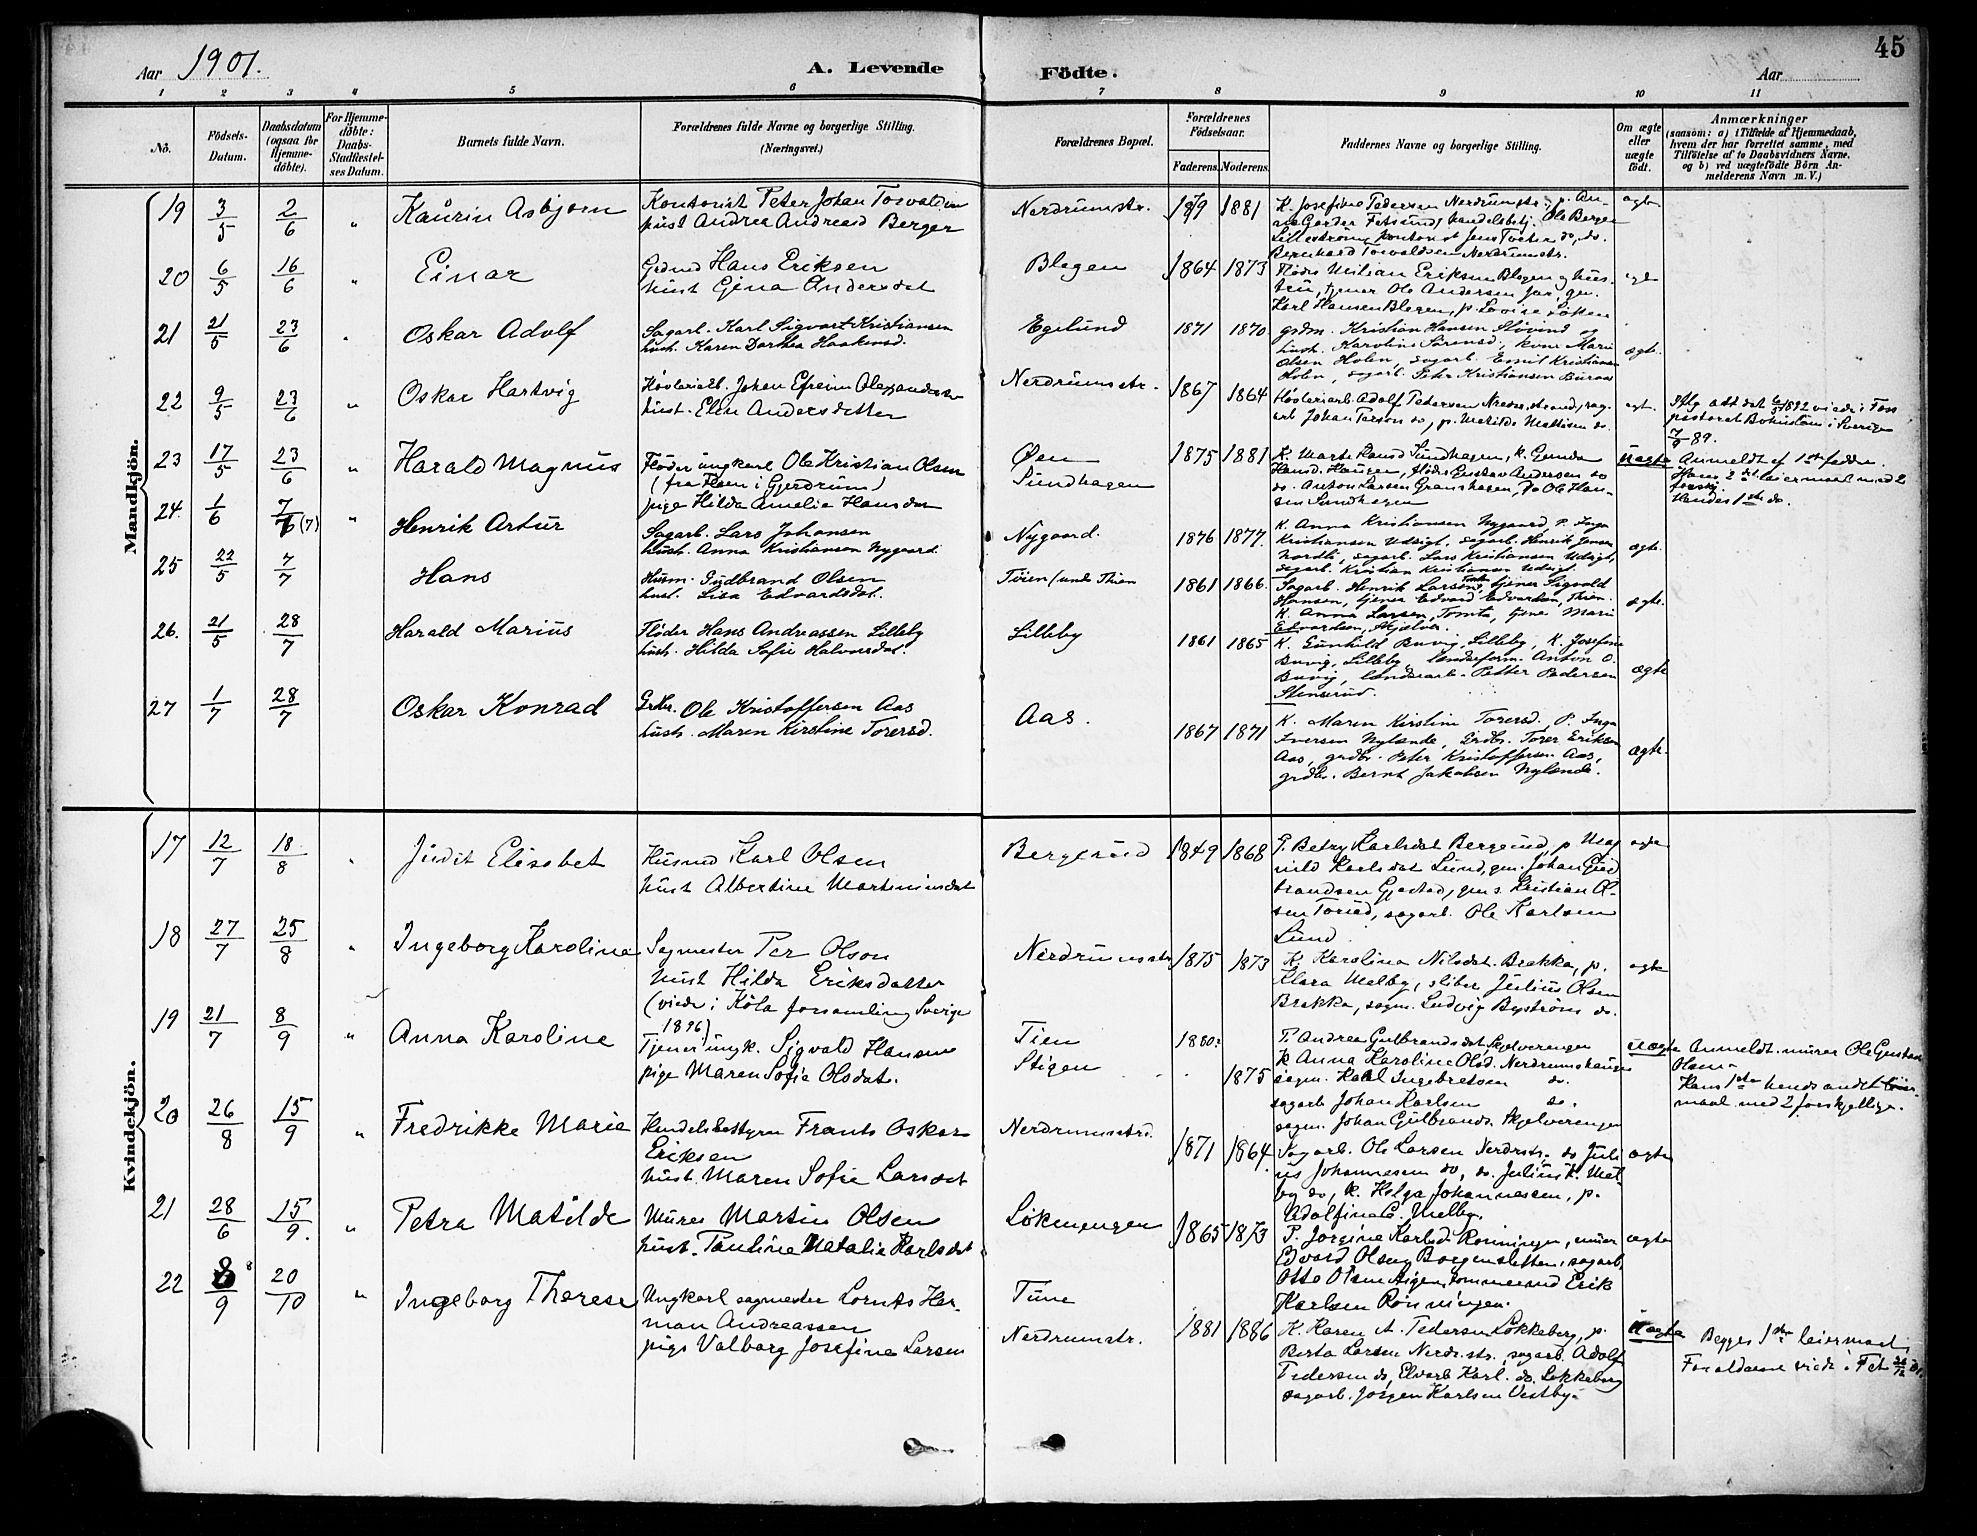 45
Aar 1901. A. Levende Födte. Aar
1 2 3 4 5 6 7 8 9 10 11
No. Födsels-Datum. Daabsdatum (ogsaa for Hjemme-döbte). For Hjemme-döbte: Daabs-Stadfæstel-ses Datum. Barnets fulde Navn. Forældrenes fulde Navne og borgerlige Stilling. (Næringsvei.) Forældrenes Bopæl. Forældrenes Födselsaar. Faderens. Moderens. Faddernes Navne og borgerlige Stilling. Om ægte eller uægte födt. Anmærkninger (saasom: a) i Tilfælde af Hjemmedaab, hvem der har forrettet samme, med Tilföielse af to Daabsvidners Navne, og b) ved uægtefödte Börn An-melderens Navn m. V.)
Mandkjön.
19 3/5 2/6 " Kaurin Asbjørn
Kontorist Peter Johan Torvaldsen
hust Andrea Andreasd Berger
Nerdrumstr. 1881
K. Josefine Pedersen Nerdrumstr., p. An-
Lillestrøm, kontorist Jens
Bernhard Torvaldsen Nerdrumstr.
ægte
20 6/5 16/6 " Einar
Grdmd Hans Eriksen
hust Gina Andersdat
Blegen 1864 1873
Fløder Milian Eriksen Blegen og hus-
tru, tjener Ole Andersen
Karl Hansen Blegen, p. Lovise
21 21/5 23/6 " Oskar Adolf
Sagarb. Karl Sigvart Kristiansen
hust. Karen Dorthea Haakensd.
Egelund 1871 1870
grdm. Kristian Hansen og
hust. Karoline Sørensd, kone Marie
Olsen Holen, sagarb. Emil Kristiansen
Holen, sagarb. Peter Kristiansen
ægte.
22 9/5 23/6 " Oskar Hartvig
Høvleriarb. Johan Efreim Olezandersen
hust. Elen Andersdatter
Nerdrumstr. 1867 1864
Høvleriarb Adolf Pedersen Nerdr.strand, sag-
arb Johan Person do, p. Matilde Mattisen do.
ægt.
Iflg att dat 6/3 1892 viede i Foss
pastorat Bohuslän i Sverige
7/9 89.
23 17/5 23/6 " Harald Magnus
Fløder ungkarl Ole Kristian Olsen
(fra Flsen i Gjerdrum)
pige Hilda Amelia Hansdar
Øen
Sundhagen
1875 1881
K. Marte Sundhagen, k. Gunda
Hansd. Haugen, fløder Gustav Andersen do
do. Anton Larsen Granshagen, do Ole Han-
sen Sundhagen
uægte
Anmeldt af 1ste fadder.
Hans 2det leiermaal med 2
forskj.
Hendes 1ste do.
24. 1/6 7/7 (7) " Henrik Artur
Sagarb. Lars Johansen
hust. Anna Kristiansen Nygaard.
Nygaard. 1876 1877.
K. Anna Kristiansen Nygaard, P. Inga
Kristiansen Udsigt, sagarb. Henrik Jensen
Nordli, sagarb. Lars Kristiansen Udsigt,
sagarb. Kristian Kristiansen Udsigt.
ægte.
25 22/5 7/7 Hans
Husm. Gudbrand Olsen
hust. Lisa Edvardsdat.
Tøien (unde Thien 1861 1866.
Sagarb. Henrik Larsen, tjener Sigvald
Hansen, tjener Edvard Edvardsen, Thien.
K. Anna Larsen, Tomta, tjene Marie
Edvardsen,
ægte.
26. 21/5 28/7 Harald Marius
Fløder Hans Andreassen Lilleby
hust. Hilda Sofie Halvorsdat.
Lilleby 1861 1865
K. Gunhild Buvig, Lilleby, K. Josefine
Buvig, Lilleby, lændseform. Anton O.
Buvig, lændsearb. Petter Pedersen
Stenserud.
ægte
27 1/7 28/7 Oskar Konrad
Grdbr. Ole Kristoffersen Aas
hust. Maren Kirstine Torersd.
Aas. 1867 1871
K. Maren Kirstine Torersd. P. Inga
Iversen Nylænde, Grdbr. Torer Eriksen
Aas, grdbr. Peter Kristoffersen Aas,
grdbr. Bernt Jakobsen Nylænde.
ægte.
Kvindekjön.
17 12/7 18/8 " Judit Elisabet
Husmd Karl Olsen
hust Albertine Martiniusdat
Bergerud 1849 1868
P. Betzy Karlsdat Bergerud, p Mag-
nild Karlsdat Lund, gm. Johan Gud
brandsen Gjestad, gms. Kristian Ol-
sen Torud, sagarb. Ole Karlsen
Lund.
ægte
18 27/7 25/8 " Ingeborg Karoline
Sagmester Per Olson
hust Hilda Eriksdatter
(viede i Köla forsamling Sverige
1896)
Nerdrumsstr 1875 1873
K. Karolina Nilsdat. Brakka, p.
Klara Melby, sliber Julius Olsen
Brakka, sagm. Ludvig Byström do.
ægte
19 21/7 8/9 " Anna Karoline
Tjener ungk. Sigvald Hansen
pige Maren Sofie Olsdat.
Tien
Stigen
1880
1875
P. Andrea Gulbrandsdat Skjelverengen
k Anna Karoline Olsd. Nerdrumshaugen
sagm. Karl Ingebretsen do.
sagarb Johan Karlsen do.
sagm. Johan Gulbrands. Skjelverengen
uægte
Anmeldt. murer Ole Gustav
Olsen
Hans 1ste hends andet leier-
maal med 2 forskjellige.
20 26/8 15/9 " Fredrikke Marie
Handelsbestyrer Frants Oskar
Eriksen
hust. Maren Sofie Larsdat
Nerdrumstr. 1871 1864.
Sagarb. Ole Larsen Nerdrstr, do Juli
us Johannesen do, do. Julius K. Mel-
by do, K. Helga Johannessen, p.
Adolfine C. Melby.
ægte
21 28/6 15/9. " Petra Matilde
Murer Martin Olsen
hust. Pauline Natalie Karlsdat
Løkenengen 1865 1873
P. Jorgine Karlsd. Rønningen, murer
Edvard Olsen Borgensletten, sagarb.
Otto Olsen Stigen, tømmermd Erik
Karlsen Rønningen.
ægte
22 8/9 20/10 " Ingeborg Therese
Ungkarl sagmester Lornts Her-
man Andreassen
pige Valborg Josefine Larsen
Tune
Nerdrumstr.
1881 1886
K. Karen A. Pedersen Løkkeberg, p.
Berta Larsen Nerdr.str., sagarb. Adolf
Pedersen do, Elvarb Karl do. Løkkeberg
sagarb. Jørgen Karlsen Vestby.
uægte
Begges 1ste leiermaal.
Forældrene viede i Fet